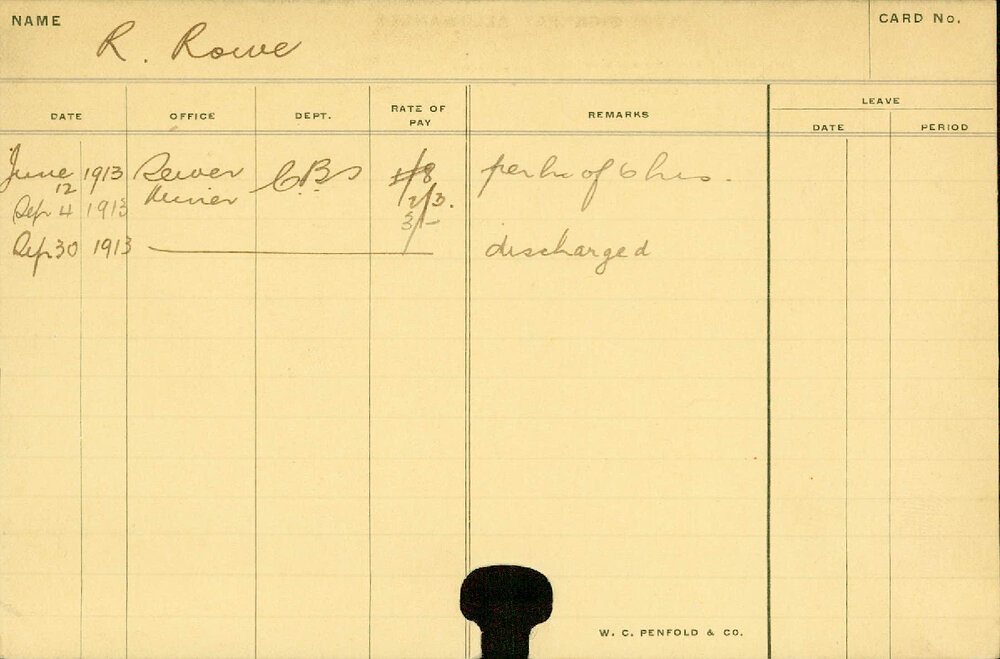 NAME
R. Rowe
CARD No.
DATE OFFICE DEPT. RATE OF PAY REMARKS LEAVE
DATE PERIOD
June 12 1913 Sewer Miner C.B.S per hr of 6 hrs.
Sep 4 1913 2/3.
3/-
Sep 30 1913 discharged
W. C. PENFOLD & CO.